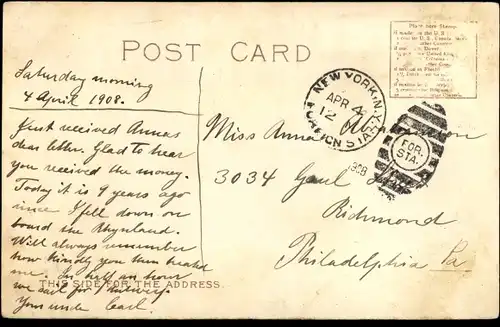 POST CARD
Saturday morning
4 April 1908.
Just received Annas
dear letter. Glad to hear
you received the money.
Today it is 9 years ago
since I fell down on
board the Rhynland.
Will always remember
how kindly you then treated
me. In half an hour
we sail for Antwerp.
Yours under Carl.
THIS SIDE FOR THE ADDRESS.
Place here Stamp
NEW YORK, N.Y.
APR 4
12
FOREIGN STA.
1908
FOR.
STA.
Miss Anna
3034 Gaul
Richmond
Philadelphia Pa